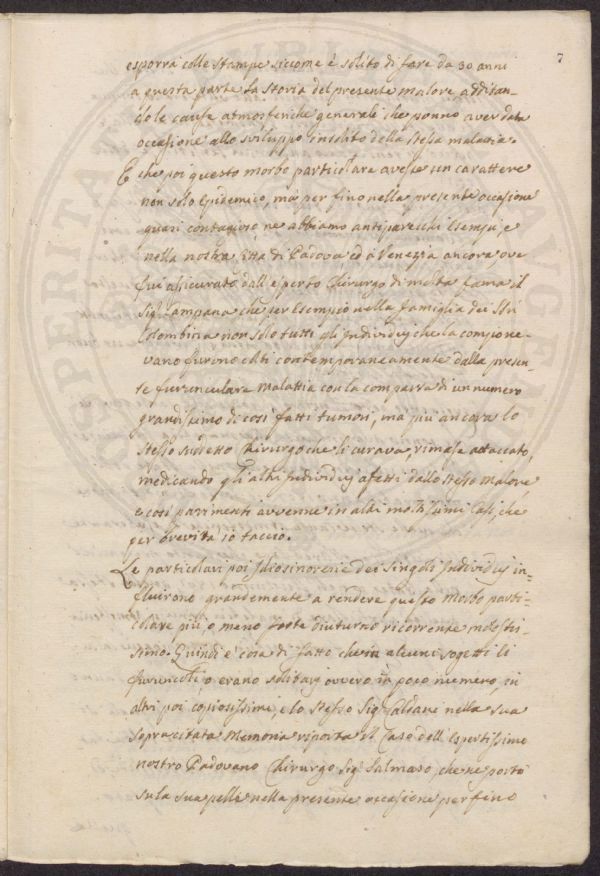 7
esporrà colle stampe siccome è solito di fare da 30 anni
a questa parte la storia del presente malore additan-
do le cause atmosferiche generali che ponno aver data
occasione allo sviluppo insolito della stessa malattia.
E che poi questo morbo particolare avesse un carattere
non solo epidemico, ma per fino nella presente occasione
quasi contagioso ne abbiamo anti parecchi Esempj, e
nella nostra Città di Padova ed a Venezia ancora, ove
fui assicurato dall'esperto Chirurgo di molta fama il
Sig. Zampana che per Esempio nella famiglia dei
Colombina non solo tutti gli Individuj che la compone-
vano furono colti contemporaneamente dalla presen-
te furunculare Malattia con la comparsa di un numero
grandissimo di così fatti tumori, ma più ancora lo
stesso sudetto Chirurgo che li curava, rimase attaccato,
medicando gli altri Individuj afetti dallo stesso Malore
e così parimenti avvenne in altri moltissimi Casi, che
per brevità io taccio.
Le particolari poi Idiosincrasie dei Singoli Individuj in-
fluirono grandemente a rendere questo Morbo parti-
colare più, o meno forte diuturno ricorrente molestis-
simo. Quindi è cosa di fatto che in alcuni sogetti li
furuncoli, o erano solitarj ovvero in poco numero, in
altri poi copiosissimi, e lo stesso Sig. Caldani nella sua
sopracitata Memoria riporta il Caso dell'Espertissimo
nostro Padovano Chirurgo Sig. Salmaso, che ne portò
su la sua pelle nella presente occasione per fino